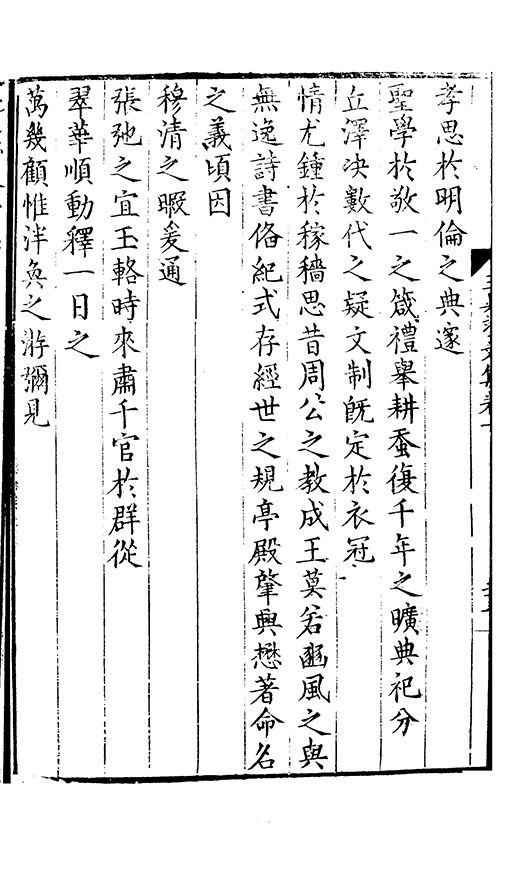 孝思於明倫之典邃
聖學於敬一之箴禮舉耕蚕復千年之曠典祀分
丘澤决數代之疑文制旣定於衣冠
情尤鍾於稼穡思昔周公之教成王莫若豳風之與
無逸詩書俻紀式存經世之規亭殿肇興懋著命名
之義頃因
穆清之暇爰通
張弛之宜玉輅時來肅千官於群從
翠華順動釋一日之
萬幾顧惟泮奐之游彌見